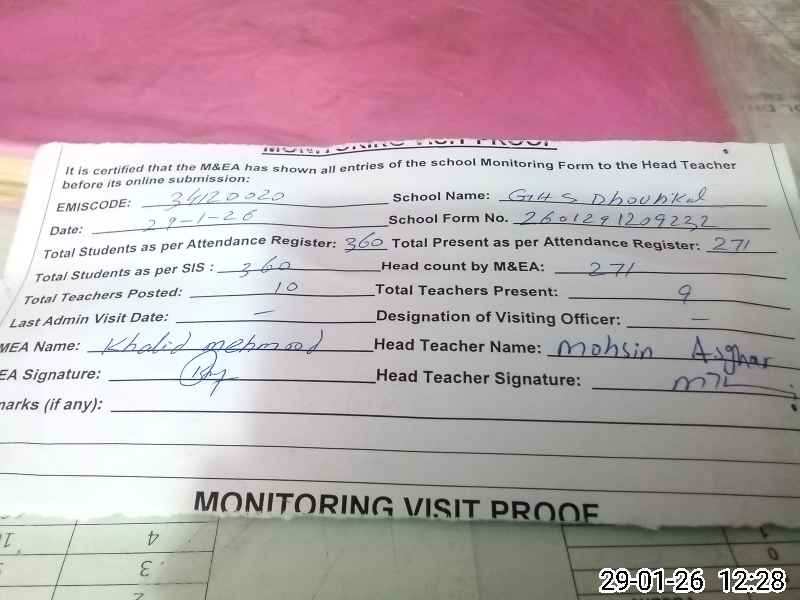 MONITORING VISIT PROOF
It is certified that the M&EA has shown all entries of the school Monitoring Form to the Head Teacher
before its online submission:
EMISCODE: 34120020 School Name: GHS Dhounkal
Date: 29-1-26 School Form No. 2601291209232
Total Students as per Attendance Register: 360 Total Present as per Attendance Register: 271
Total Students as per SIS : 360 Head count by M&EA: 271
Total Teachers Posted: 10 Total Teachers Present: 9
Last Admin Visit Date: — Designation of Visiting Officer: —
MEA Name: Khalid mehmood Head Teacher Name: Mohsin Asghar
EA Signature: Head Teacher Signature:
marks (if any):
MONITORING VISIT PROOF
4
3
2
1
0
29-01-26 12:28